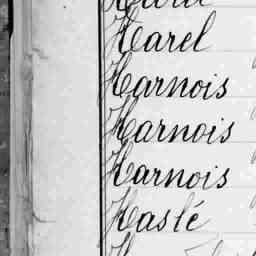 Harel
Harnois
Harnois
Harnois
Haslé